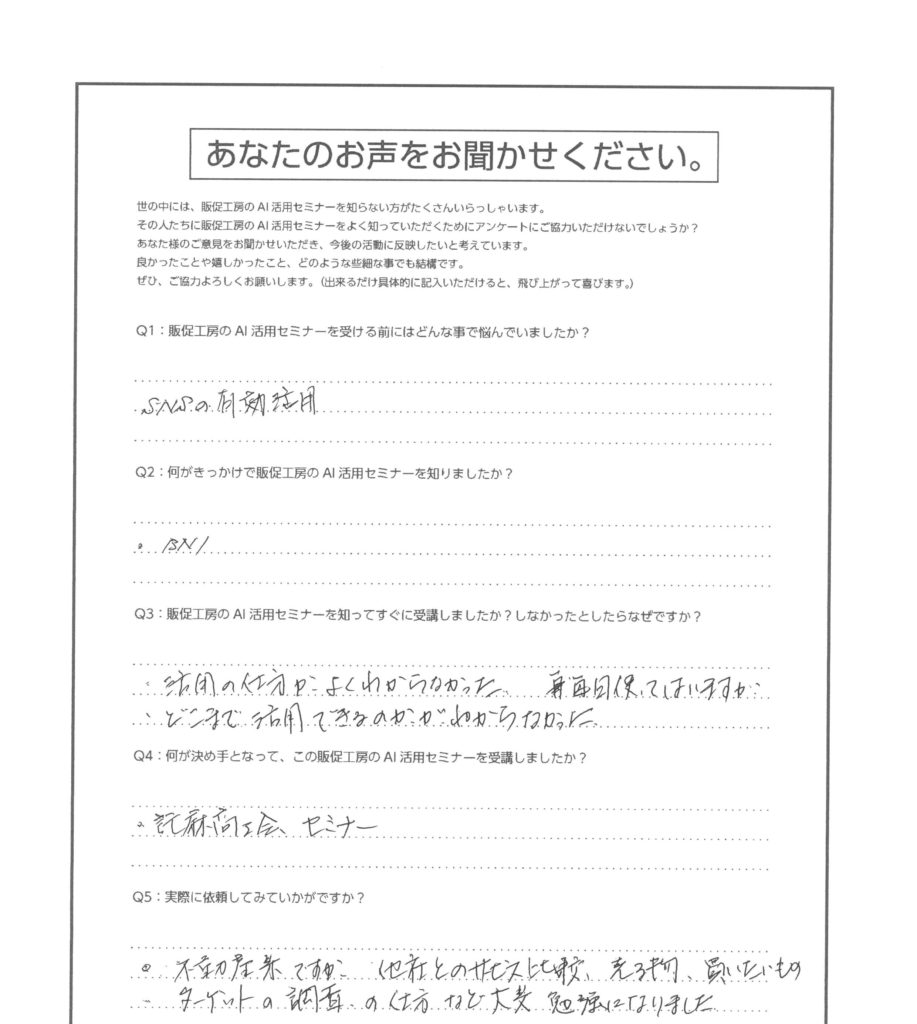 あなたのお声をお聞かせください。
世の中には、販促工房のAI活用セミナーを知らない方がたくさんいらっしゃいます。
その人たちに販促工房のAI活用セミナーをよく知っていただくためにアンケートにご協力いただけないでしょうか?
あなた様のご意見をお聞かせいただき、今後の活動に反映したいと考えています。
良かったことや嬉しかったこと、どのような些細な事でも結構です。
ぜひ、ご協力よろしくお願いします。(出来るだけ具体的に記入いただけると、飛び上がって喜びます。)
Q1:販促工房のAI活用セミナーを受ける前にはどんな事で悩んでいましたか?
SNSの有効活用
Q2:何がきっかけで販促工房のAI活用セミナーを知りましたか?
・BNI
Q3:販促工房のAI活用セミナーを知ってすぐに受講しましたか?しなかったとしたらなぜですか?
・活用の仕方がよくわからなかった。 使ってはいますが
・どこまで活用できるのかがわからなかった。
Q4:何が決め手となって、この販促工房のAI活用セミナーを受講しましたか?
・託麻商工会、セミナー
Q5:実際に依頼してみていかがですか?
・不動産業ですが 他社とのサービス比較、売る物、買いたいもの
ターゲットの調査の仕方など大変勉強になりました